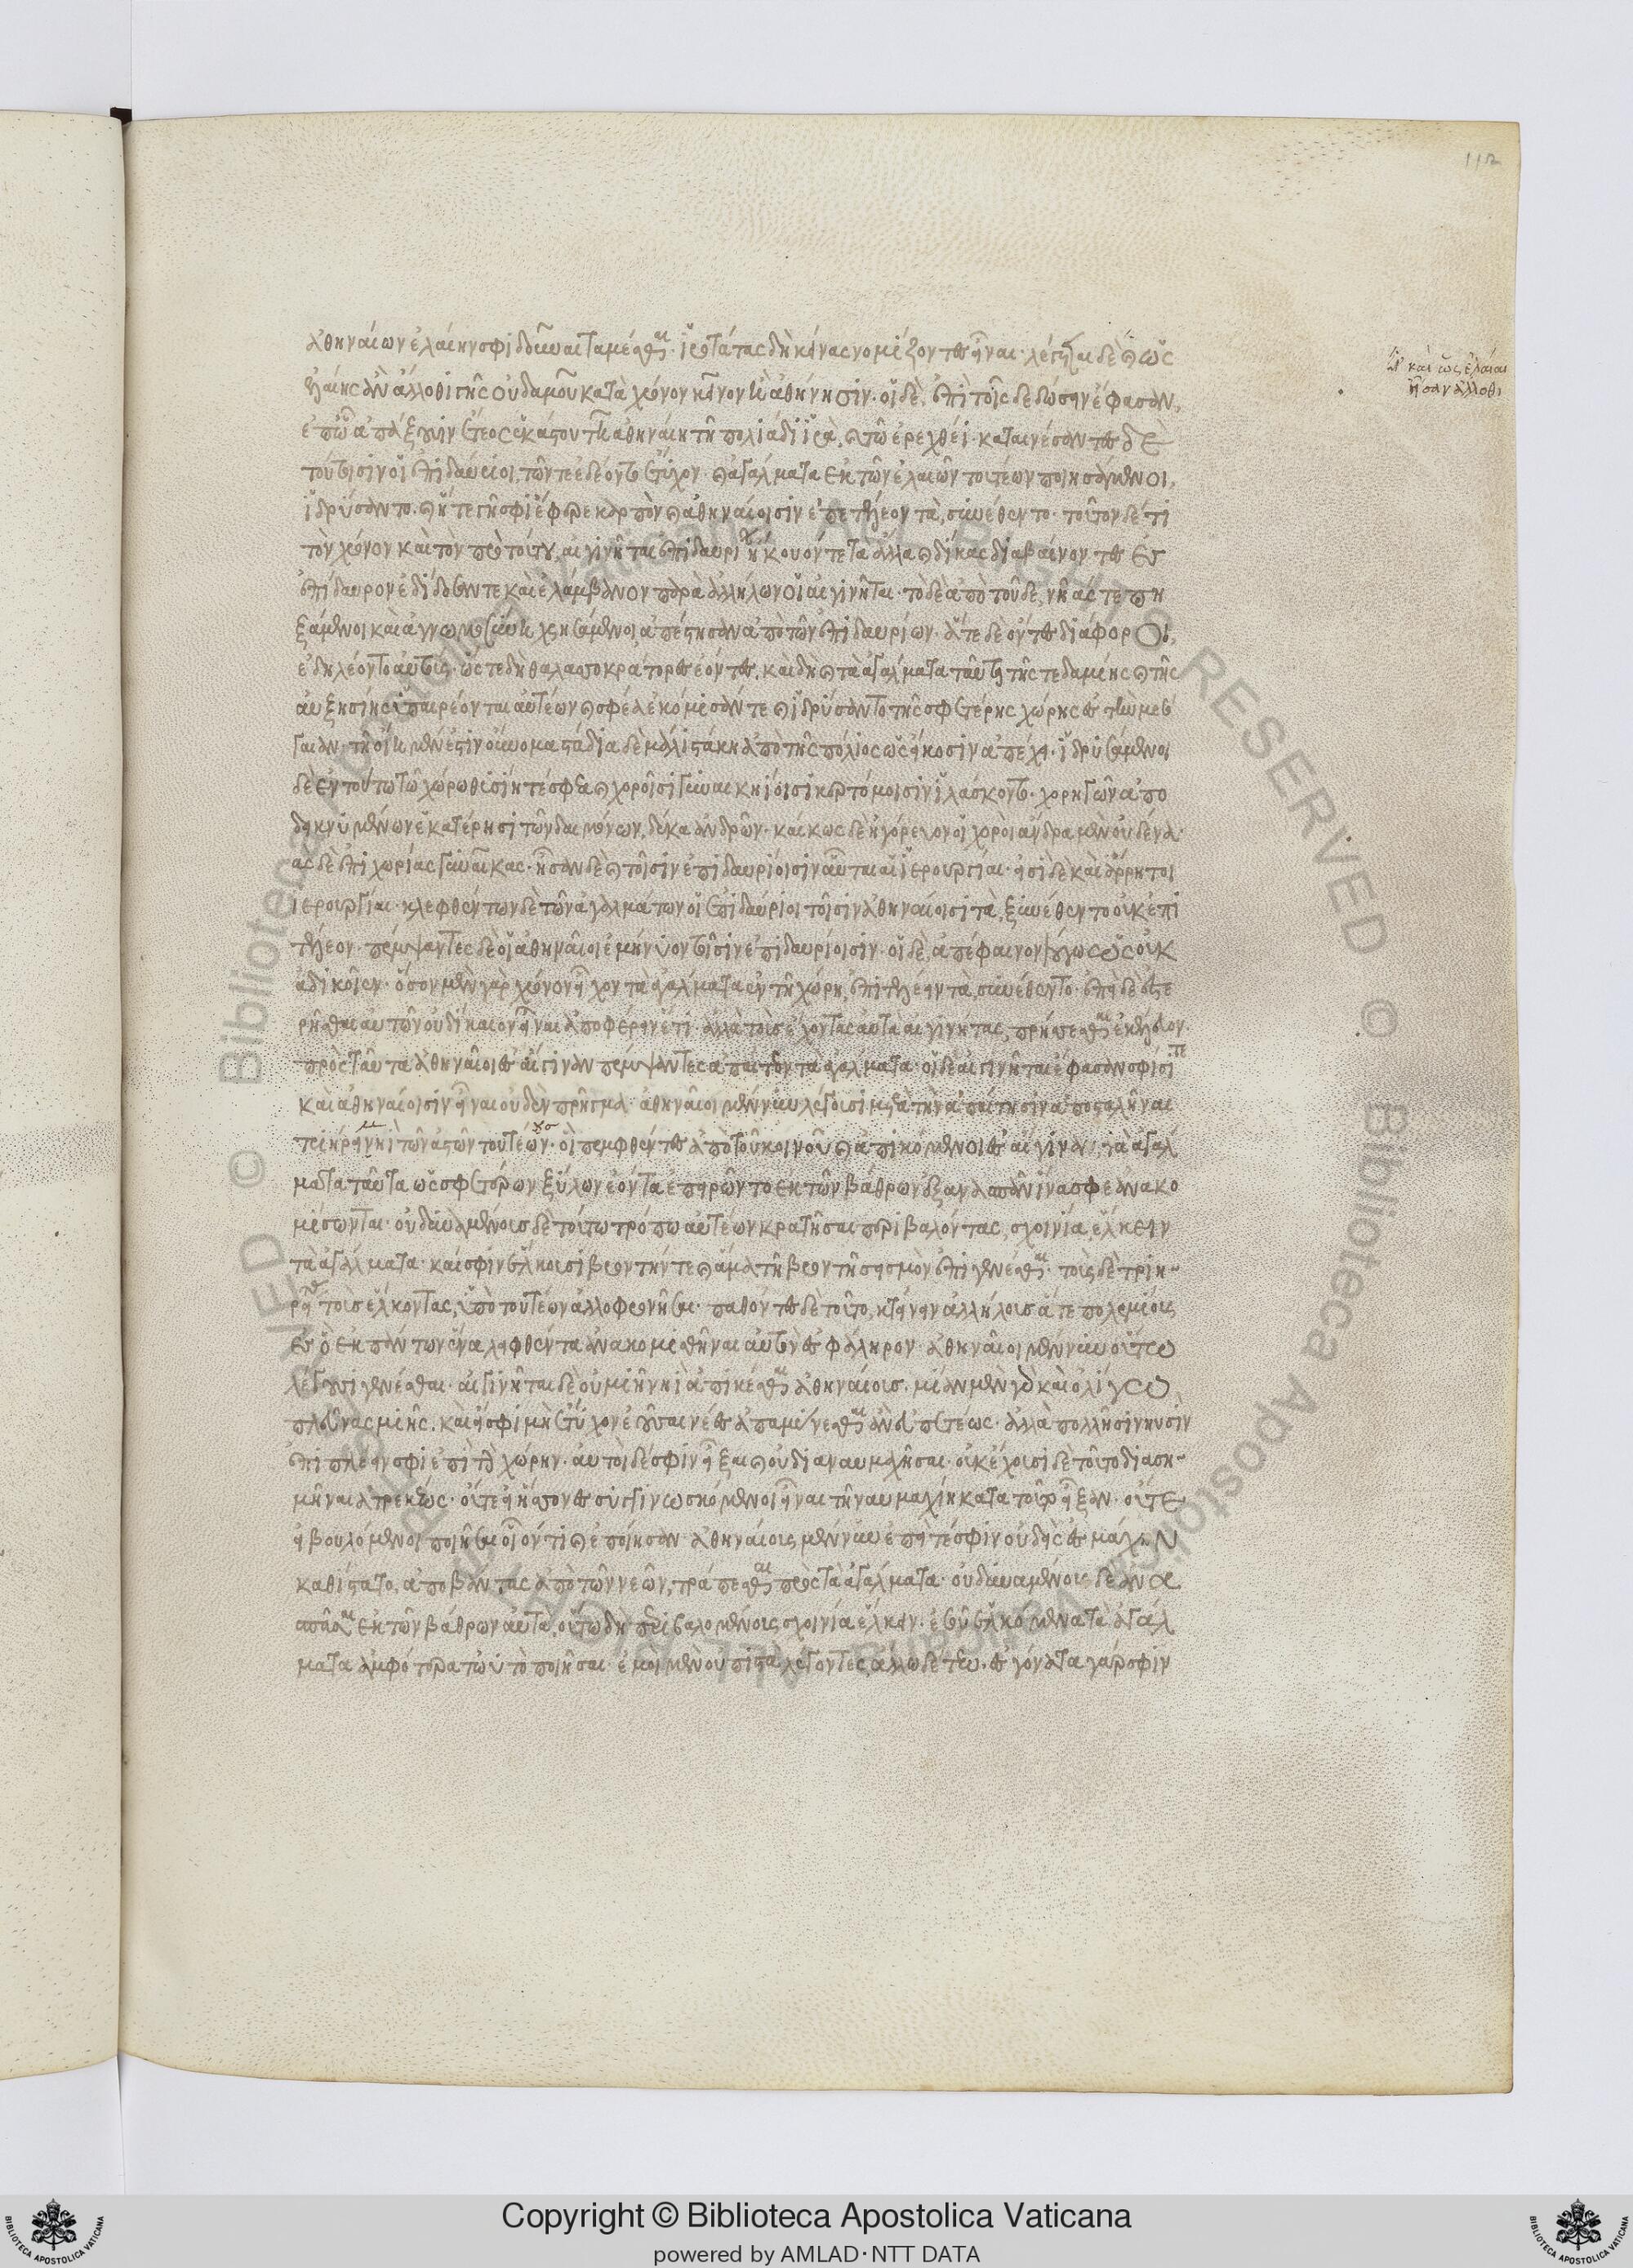 ἀθηναίων ἐλαίην σφι δοῦναι ταμέσθαι· ἱρωτάτας δὴ κείνας νομίζοντες εἶναι· λέγεται δὲ καὶ ὡς
ἐλαίης ἂν ἄλλοθι γῆς οὐδαμοῦ κατὰ χρόνον κεῖνον ἢ ἀθήνησιν· οἱ δὲ, ἐπὶ τοῖς δε δώσειν ἔφασαν,
ἐπ' ὧ ἀπάξουσιν ἔτεος ἑκάστου τῆ ἀθηναίη τῆ πολιάδι ἱρὰ, καὶ τῶ ἐρεχθέι· καταινέσαντες δὲ
τούτοισιν οἱ ἐπιδαύριοι, τῶν τε ἐδέοντο ἔτυχον· καὶ ἀγάλματα ἐκ τῶν ἐλαιῶν τουτέων ποιησάμενοι,
ἱδρύσαντο· καὶ ἥ τε γῆ σφι ἔφερε καρπὸν καὶ ἀθηναίοισιν ἐπετέλεον τὰ, συνέθεντο· τοῦτον δ' ἔτι
τὸν χρόνον καὶ τὸν πρὸ τούτου, αἰγινῆται ἐπιδαυρίων ἤκουόν τε τὰ ἄλλα καὶ δίκας διαβαίνοντες ἐς
ἐπίδαυρον ἐδίδοσάν τε καὶ ἐλάμβανον παρὰ ἀλλήλων οἱ αἰγινῆται· τὸ δὲ ἀπὸ τοῦδε, νῆάς τε πη
ξάμενοι καὶ ἀγνωμοσύνη χρησάμενοι, ἀπέστησαν ἀπὸ τῶν ἐπιδαυρίων· ἅτε δὲ ὄντες διάφοροι,
ἐδηλέοντο αὐτούς· ὥς τε δὴ θαλασσοκράτορες ἐόντες, καὶ δὴ καὶ τὰ ἀγάλματα ταῦτα τῆς τε δαμίης καὶ τῆς
αὐξησίης ὑπαιρέονται αὐτέων καὶ σφέα ἐκόμισάν τε καὶ ἱδρύσαντο τῆς σφετέρης χώρης ἐς τὴν μεσό
γαιαν· τῆ οἴη μέν ἐστιν οὔνομα, στάδια δὲ μάλιστά κη ἀπὸ τῆς πόλιος ὡς εἴκοσιν ἀπέχει· ἱδρυσάμενοι
δὲ ἐν τούτω τῶ χώρω θυσίησί τέ σφεα καὶ χοροῖσι γυναικηίοισι κερτόμοισιν ἱλάσκοντο· χορηγῶν ἀπο
δεικνυμένων ἑκατέρησι τῶν δαιμόνων, δέκα ἀνδρῶν· κακῶς δὲ ἠγόρευον οἱ χοροὶ ἄνδρα μὲν οὐδένα·
τὰς δὲ ἐπιχωρίας γυναῖκας· ἦσαν δὲ καὶ τοῖσιν ἐπιδαυρίοισιν αὗται αἱ ἱερουργίαι· εἰσὶ δὲ καὶ ἄρρητοι
ἱερουργίαι· κλεφθέντων δὲ τῶν ἀγαλμάτων οἱ ἐπιδαύριοι τοῖσιν ἀθηναίοισι τὰ, ξυνέθεντο οὐκ ἐπε
τέλεον· πέμψαντες δὲ οἱ ἀθηναῖοι ἐμήνυον τοῖσιν ἐπιδαυρίοισιν· οἱ δὲ, ἀπέφαινον λόγω ὡς οὐκ
ἀδικοῖεν· ὅσον μὲν γὰρ χρόνον εἶχον τὰ ἀγάλματα ἐν τῆ χώρη, ἐπιτελέειν τὰ, συνέθεντο· ἐπεὶ δὲ ἐστε
ρῆσθαι αὐτῶν οὐ δίκαιον εἶναι ἀποφέρειν ἔτι· ἀλλὰ τοὺς ἔχοντας αὐτὰ αἰγινήτας, πρήσσεσθαι ἐκέλευον·
πρὸς ταῦτα ἀθηναῖοι ἐς αἴγιναν πέμψαντες ἀπαίτεον τὰ ἀγάλματα· οἱ δὲ αἰγινῆται ἔφασαν σφίσι τε
καὶ ἀθηναίοισιν εἶναι οὐδὲν πρῆγμα· ἀθηναῖοι μέν νυν λέγουσι μετὰ τὴν ἀπαίτησιν ἀποσταλῆναι
τριήρει μιῆ τῶν ἀστῶν τούτους· οἳ πεμφθέντες ἀπὸ τοῦ κοινοῦ καὶ ἀπικόμενοι ἐς αἴγιναν τὰ ἀγάλ
ματα ταῦτα ὡς σφετέρων ξύλων ἐόντα ἐπειρῶντο ἐκ τῶν βάθρων ἐξανασπᾶν ἵνα σφέα ἀνακο
μίσωνται· οὐ δυναμένους δὲ τούτω τρόπω αὐτέων κρατῆσαι περιβαλόντας, σχοινία, ἕλκειν
τὰ ἀγάλματα· καί σφιν ἕλκουσι βροντήν τε καὶ ἅμα τῆ βροντῆ σεισμὸν ἐπιγενέσθαι· τοὺς δὲ τριη-
ρίτας τοὺς ἕλκοντας, ὑπὸ τουτέων ἀλλοφρονῆσαι· παθόντες δὲ τοῦτο, κτείνειν ἀλλήλους ἅτε πολεμίους
ἐς ὃ ἐκ πάντων ἕνα λειφθέντα ἀνακομισθῆναι αὐτὸν ἐς φάληρον· ἀθηναῖοι μέν νυν οὕτω
λέγουσι γενέσθαι· αἰγινῆται δὲ οὐ μιῆ νηὶ ἀπικέσθαι ἀθηναίους· μίαν μὲν γὰρ καὶ ὀλίγω
πλεῦνας μιῆς, καὶ εἰ σφι μὴ ἔτυχον ἐοῦσαι νέες ἀπαμύνεσθαι ἂν εὐπετέως· ἀλλὰ πολλῆσι νηυσὶν
ἐπιπλέειν σφι ἐπὶ τὴν χώρην· αὐτοὶ δέ σφιν εἶξαι καὶ οὐ διαναυμαχῆσαι· οὐκ ἔχουσι δὲ τοῦτο διαση-
μῆναι ἀτρεκέως· οὔτε εἰ ἥσσονες συγγινωσκόμενοι εἶναι τῆ ναυμαχίη κατὰ τοῦτο εἶξαν· οὔτε
εἰ βουλόμενοι ποιῆσαι οἷόν τι καὶ ἐποίησαν· ἀθηναίους μέν νυν ἐπεί τέ σφιν οὐδεὶς ἐς μάχην
καθίστατο, ἀποβάντας ἀπὸ τῶν νεῶν, τράπεσθαι πρὸς τὰ ἀγάλματα· οὐ δυναμένους δὲ ἀνα
σπάσαι ἐκ τῶν βάθρων αὐτὰ, οὕτω δὴ περιβαλομένους σχοινία ἕλκειν· ἐς οὗ ἑλκόμενα τὰ ἀγάλ
ματα ἀμφότερα τὠυτὸ ποιῆσαι· ἐμοὶ μὲν οὐ πιστὰ λέγοντες, ἄλλω δέ τεω· ἐς γόνατα γάρ σφιν
καὶ ὡς ἐλαῖαι
ἦσαν ἄλλοθι
112
Copyright © Biblioteca Apostolica Vaticana
powered by AMLAD·NTT DATA